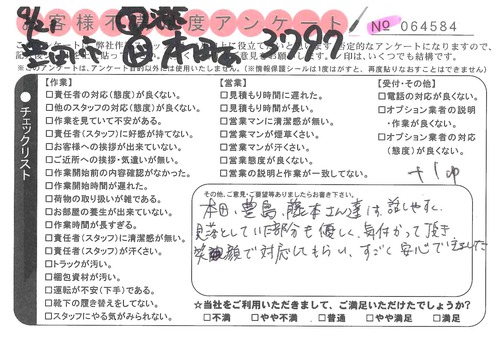 お客様不満度アンケート
№ 064584
3797
豊田市
このアンケートは、弊社作
否定的なアンケートになりますので、
※このアンケートは、アンケート目的以外には使用いたしません。(※情報保護シールは1度はがすと、再度貼りなおすことはできません)
チェックリスト
【作業】
□責任者の対応(態度)が良くない。
□他のスタッフの対応(態度)が良くない。
□作業を見ていて不安がある。
□責任者(スタッフ)に好感が持てない。
□お客様への挨拶が出来ていない。
□ご近所への挨拶・気遣いが無い。
□作業開始前の内容確認がなかった。
□作業開始時間が遅れた。
□荷物の取り扱いが雑である。
□お部屋の養生が出来ていない。
□作業時間が長すぎる。
□責任者(スタッフ)に清潔感が無い。
□責任者(スタッフ)が汗くさい。
□トラックが汚い。
□梱包資材が汚い。
□運転が不安(下手)である。
□靴下の履き替えをしてない。
□スタッフにやる気がみられない。
【営業】
□見積もり時間に遅れた。
□見積もり時間が長い。
□営業マンに清潔感が無い。
□営業マンが煙草くさい。
□営業マンが汗くさい。
□営業態度が良くない。
□営業の説明と作業が一致してない。
【受付・その他】
□電話の対応が良くない。
□オプション業者の説明
・作業が良くない。
□オプション業者の対応
(態度)が良くない。
その他、ご意見・ご要望等ありましたらお書き下さい。
本田、豊島、藤本さん達は、話しやすく、
見落としていた部分も優しく、気付かって頂き、
笑顔で対応してもらい、すごく安心できました
☆当社をご利用いただきまして、ご満足いただけたでしょうか?
□不満 □やや不満 □普通 □やや満足 □満足